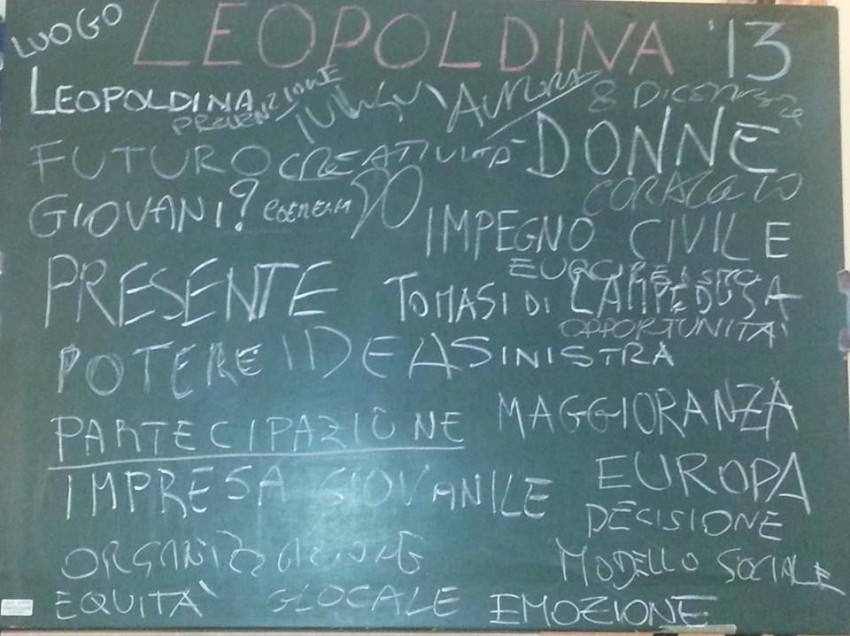 LUOGO LEOPOLDINA '13
LEOPOLDINA PREVENZIONE AURORA 8 DICEMBRE
FUTURO CREATIVITÀ DONNE
CORAGGIO
GIOVANI? IMPEGNO CIVILE
EUROPEISMO
PRESENTE TOMASI DI LAMPEDUSA
OPPORTUNITA'
POTERE IDEA SINISTRA
PARTECIPAZIONE MAGGIORANZA
IMPRESA GIOVANILE EUROPA
DECISIONE
ORGANIZZAZIONE MODELLO SOCIALE
EQUITA' GLOCALE EMOZIONE